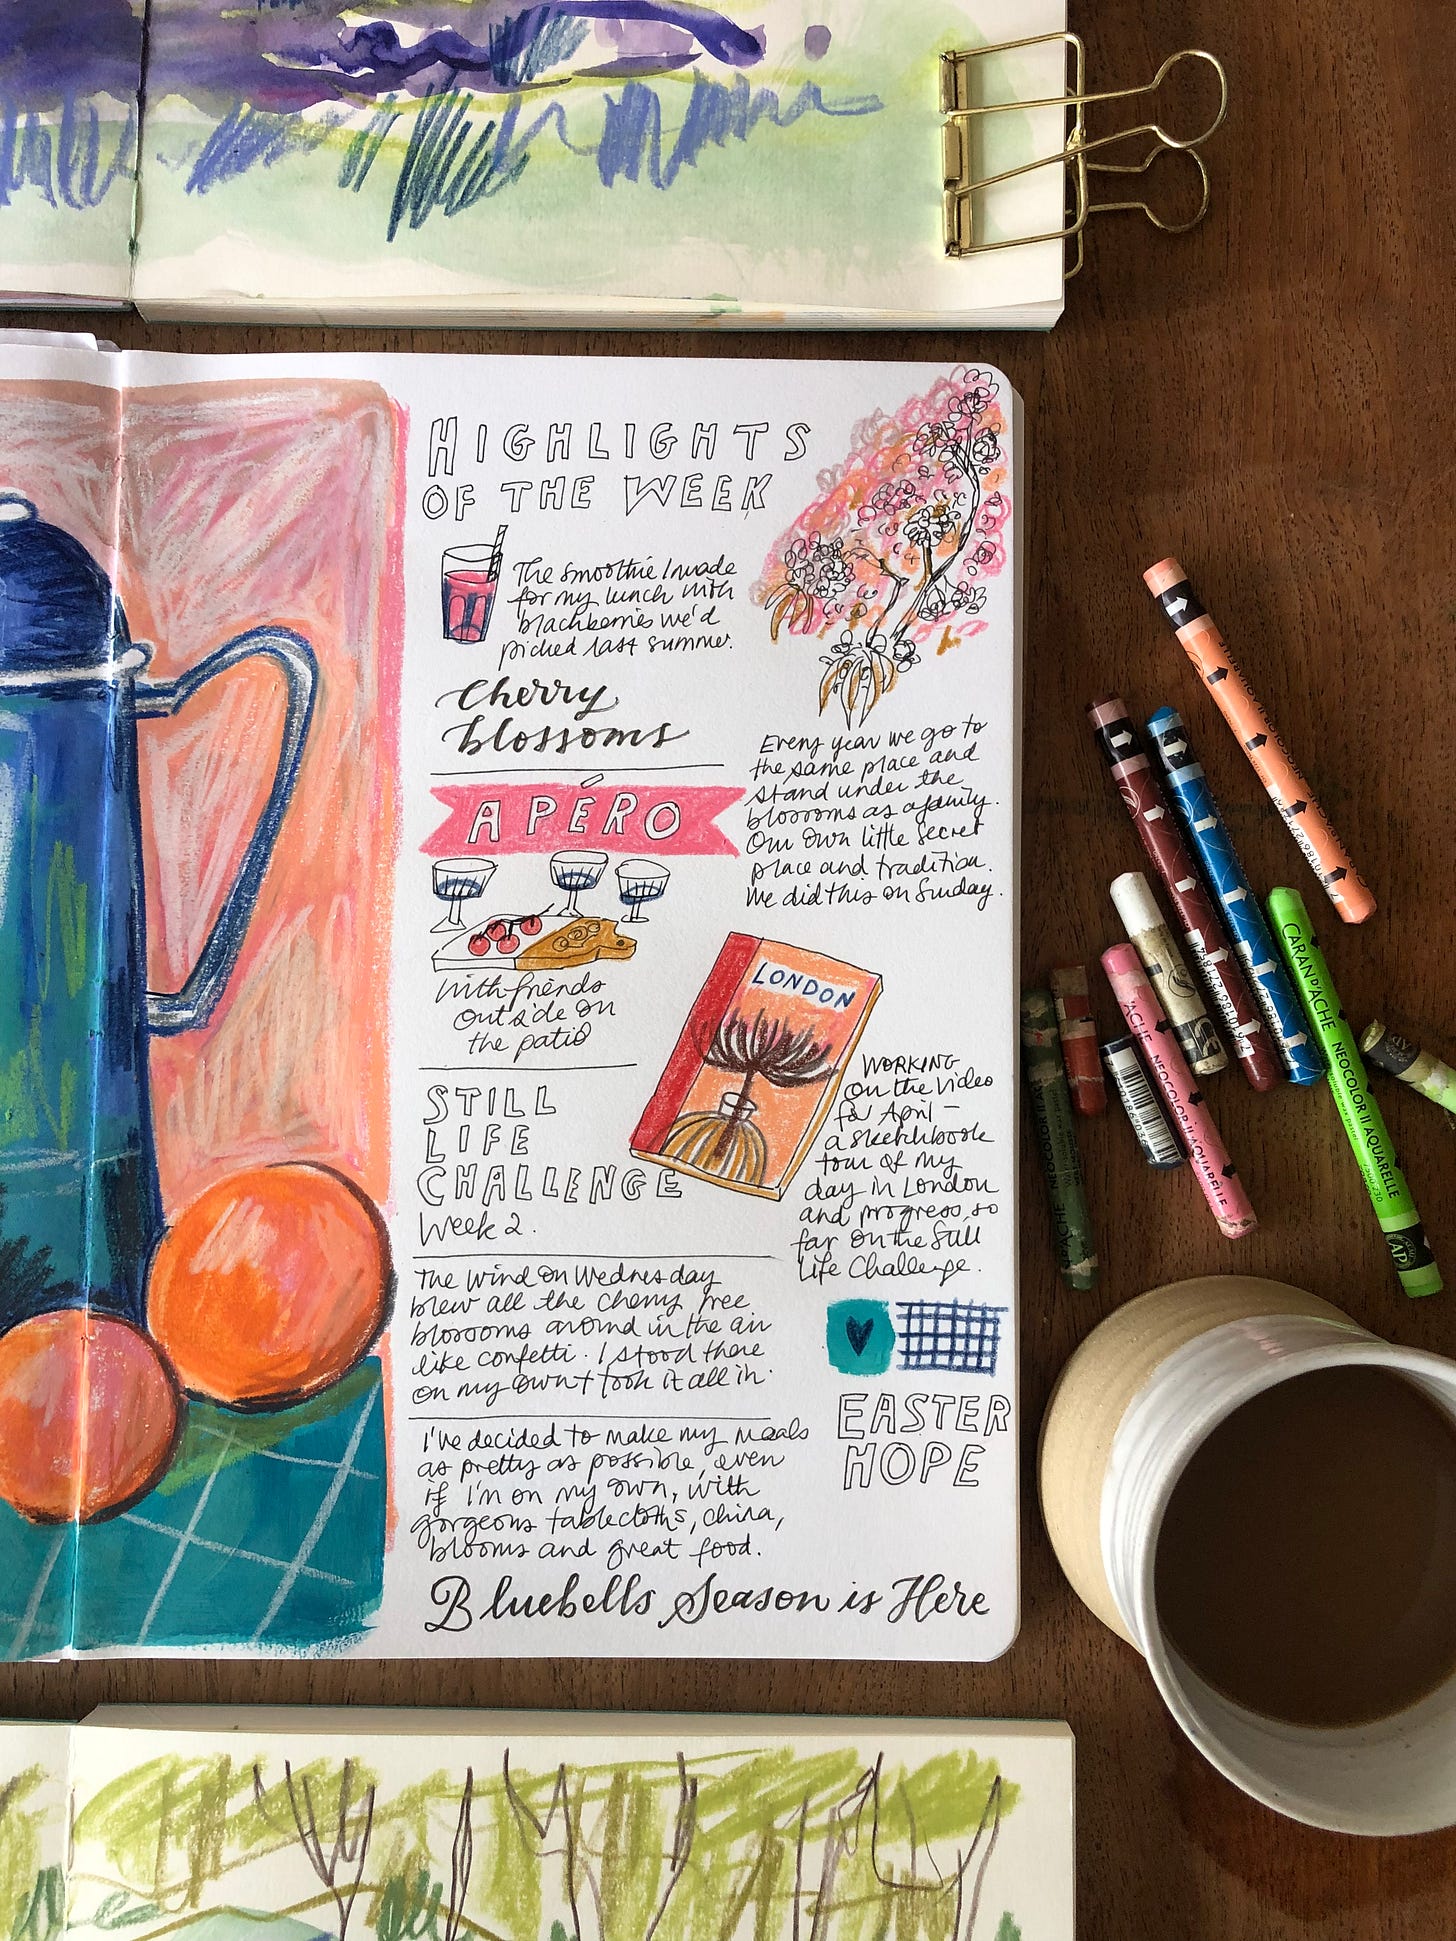 HIGHLIGHTS
OF THE WEEK
The smoothie I made
for my lunch with
blackberries we'd
picked last summer.
Cherry
blossoms
Every year we go to
the same place and
stand under the
blossoms as a family.
Our own little secret
place and tradition.
We did this on Sunday.
APÉRO
with friends
outside on
the patio
LONDON
WORKING
on the video
for April –
a sketchbook
tour of my
day in London
and progress so
far on the Still
Life Challenge.
STILL
LIFE
CHALLENGE
Week 2.
The wind on Wednesday
blew all the cherry tree
blossoms around in the air
like confetti. I stood there
on my own + took it all in.
I've decided to make my meals
as pretty as possible, even
if I'm on my own, with
gorgeous tablecloths, china,
blooms and great food.
EASTER
HOPE
Bluebells Season is Here
CARAN D'ACHE NEOCOLOR II AQUARELLE
ACHE NEOCOLOR II AQUARELLE